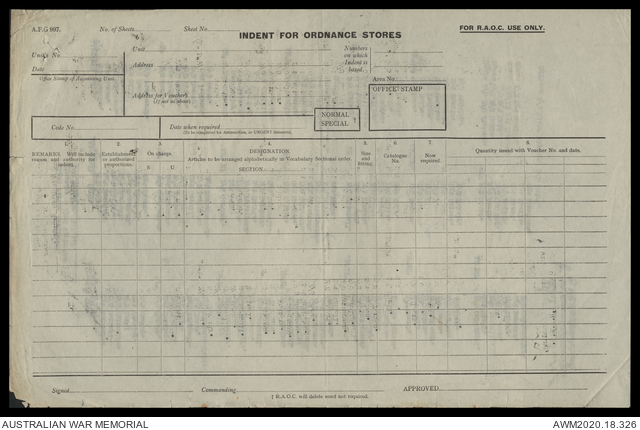 A.F.G 997.
No. of Sheets
Sheet No.
INDENT FOR ORDNANCE STORES
FOR R.A.O.C. USE ONLY.
Unit's No
Date
Office Stamp of Indenting Unit.
Unit
Address
Address for Vouchers
(If not as above)
Numbers
on which
Indent is
based.
Area No.
OFFICE STAMP
Code No.
Date when required
(To be completed for Automotive, or URGENT demands)
NORMAL
SPECIAL †
1. 2. 3. 4. 5. 6. 7. 8.
REMARKS Will include
reason and authority for
indent.
Establishment
or authorized
proportions.
On charge.
S U
DESIGNATION
Articles to be arranged alphabetically in Vocabulary Sectional order.
SECTION
Size
and
fitting.
Catalogue
No.
Now
required.
Quantity issued with Voucher No. and date.
Signed
Commanding
APPROVED
† R.A.O.C. will delete word not required.
AUSTRALIAN WAR MEMORIAL
AWM2020.18.326